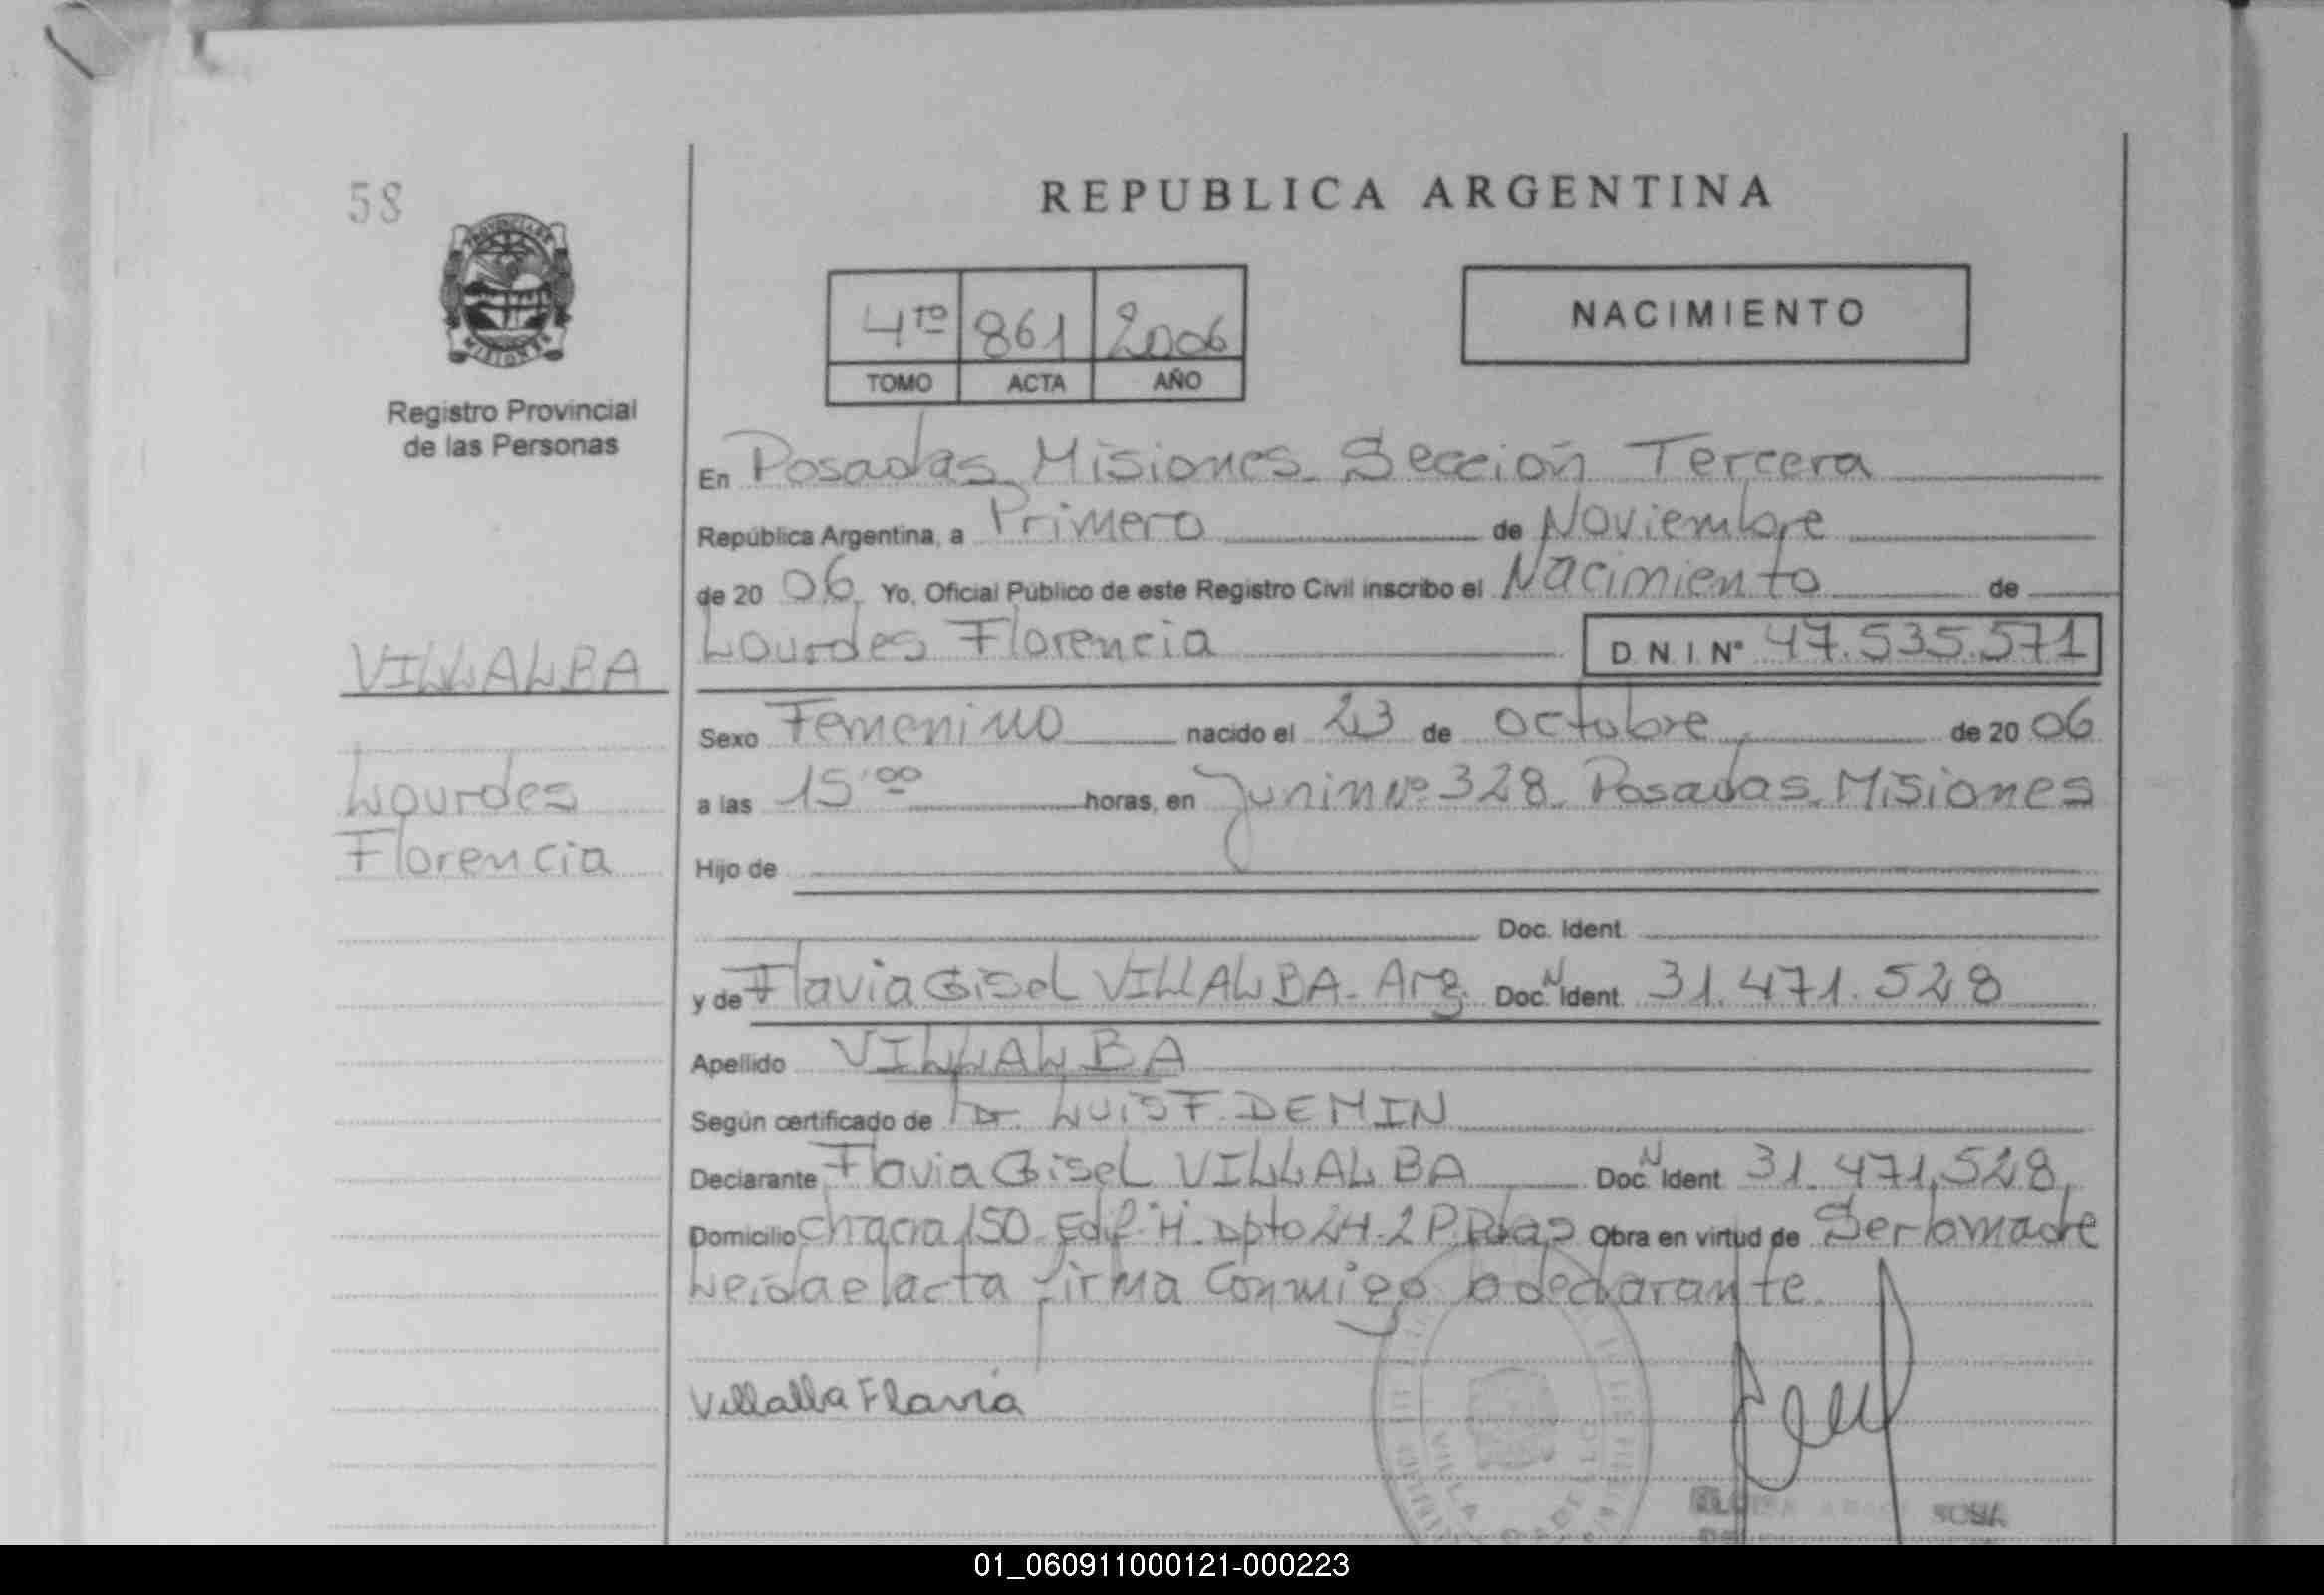 58
REPUBLICA ARGENTINA
PROVINCIA DE
MISIONES
Registro Provincial
de las Personas
4to 861 2006
TOMO ACTA AÑO
NACIMIENTO
En Posadas Misiones Sección Tercera
República Argentina, a Primero de Noviembre
de 20 06 Yo, Oficial Público de este Registro Civil inscribo el Nacimiento de
VILLALBA
Lourdes Florencia D N I Nº 47.535.571
Sexo Femenino nacido el 23 de octubre de 20 06
Lourdes
a las 15:00 horas, en Junin Nº 328 Posadas Misiones
Florencia
Hijo de
Doc. Ident.
y de Flavia Gisel VILLALBA - Arg. Doc. N Ident. 31.471.528
Apellido VILLALBA
Según certificado de Dr. LUIS F. DEMIN
Declarante Flavia Gisel VILLALBA Doc. N Ident. 31.471.528
Domicilio Chacra 150 Edif. H. Dpto 24-2 P. Pdas Obra en virtud de Ser la madre
Leida el acta firma conmigo la declarante.
Villalba Flavia
01_060911000121-000223